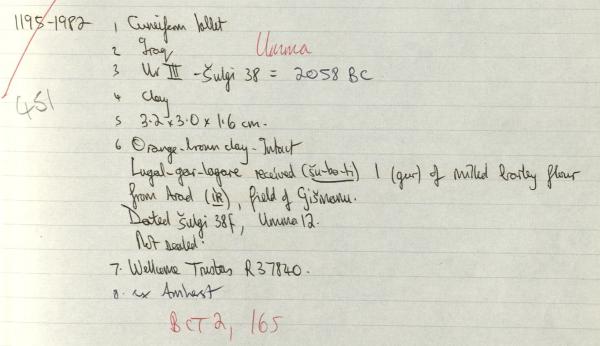 1195-1982 1 Cuneiform tablet
2 Iraq Umma
3 Ur III - Šulgi 38 = 2058 BC
451 4 Clay
5 3.2 x 3.0 x 1.6 cm.
6 Orange-brown clay - Intact
Lugal-gar-lagare received (šu-ba-ti) 1 (gur) of milled barley flour
from Arad (ÌR), field of Gišmanu.
Dated Šulgi 38f, Umma 12.
Not sealed.
7. Wellcome Trustees R37840.
8. ex Amherst
BCT 2, 165